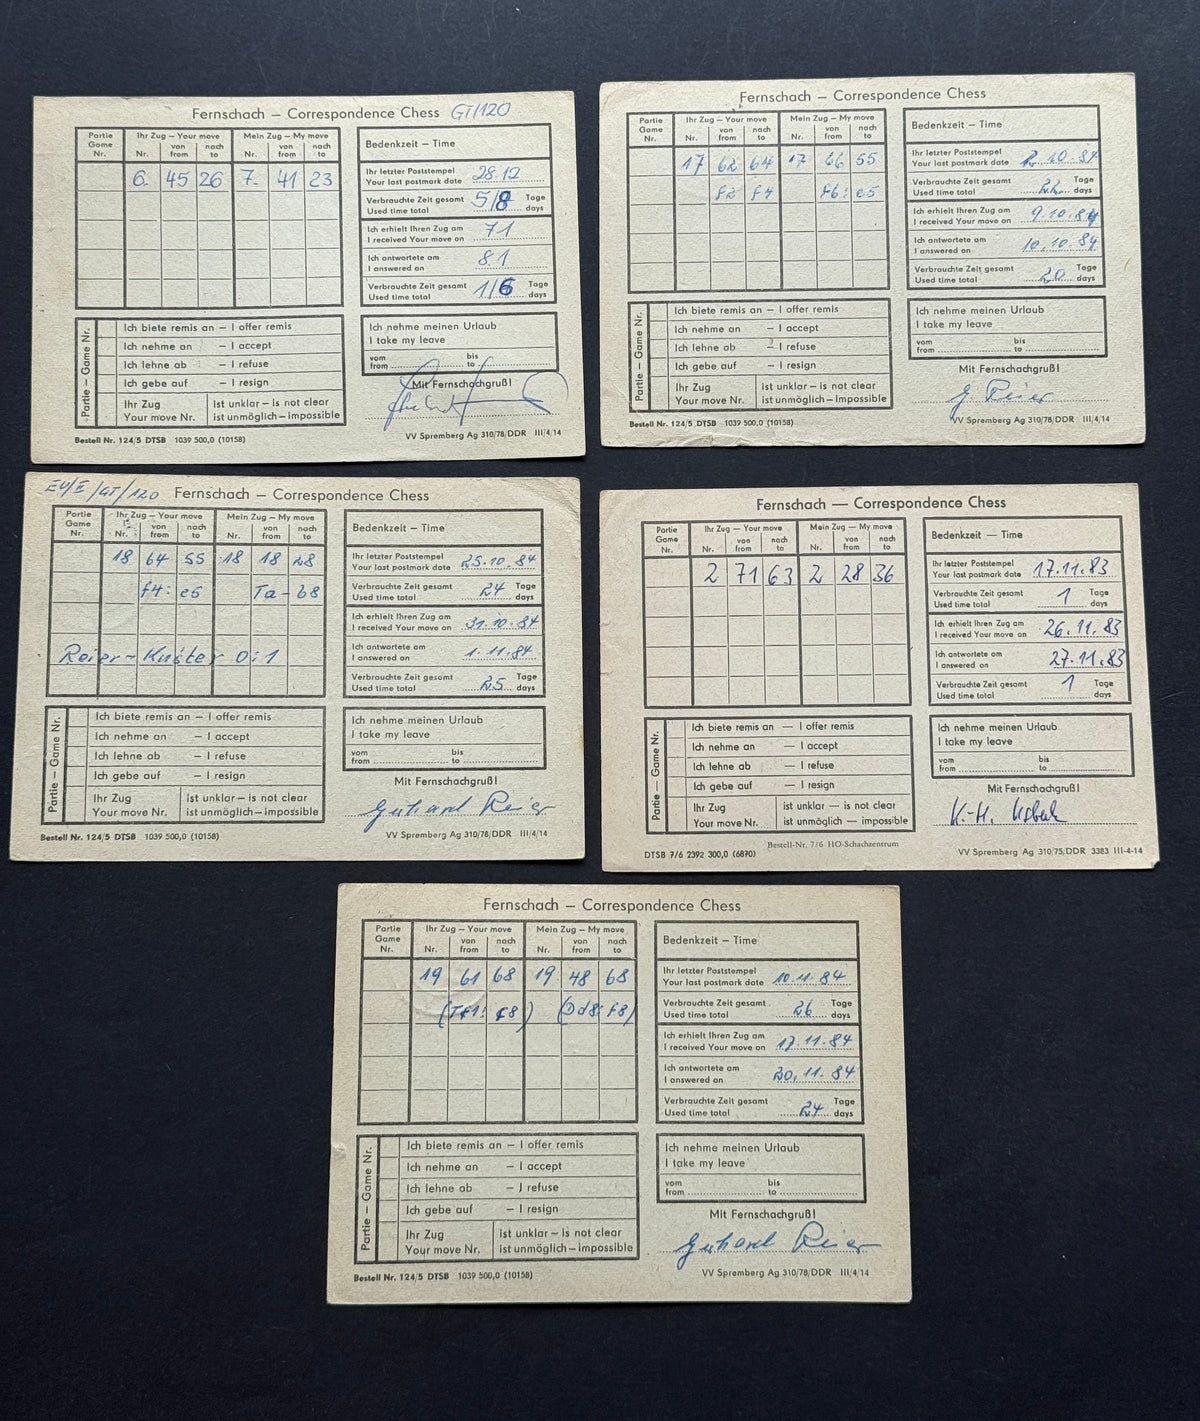 Fernschach – Correspondence Chess GT/120
Partie Game Nr.
Ihr Zug – Your move
Mein Zug – My move
Nr. von from nach to Nr. von from nach to
6. 45 26 7. 41 23
Bedenkzeit – Time
Ihr letzter Poststempel
Your last postmark date 28.12
Verbrauchte Zeit gesamt
Used time total 5/8 Tage days
Ich erhielt Ihren Zug am
I received Your move on 7.1
Ich antwortete am
I answered on 8.1
Verbrauchte Zeit gesamt
Used time total 1/6 Tage days
Partie – Game Nr.
Ich biete remis an – I offer remis
Ich nehme an – I accept
Ich lehne ab – I refuse
Ich gebe auf – I resign
Ihr Zug ist unklar – is not clear
Your move Nr. ist unmöglich – impossible
Ich nehme meinen Urlaub
I take my leave
vom from bis to
Mit Fernschachgruß!
Bestell Nr. 124/5 DTSB 1039 500,0 (10158)
VV Spremberg Ag 310/78/DDR III/4/14
Fernschach – Correspondence Chess
Partie Game Nr.
Ihr Zug – Your move
Mein Zug – My move
Nr. von from nach to Nr. von from nach to
17 62 64 17 66 55
f2 f4 f6: e5
Bedenkzeit – Time
Ihr letzter Poststempel
Your last postmark date 2.10.84
Verbrauchte Zeit gesamt
Used time total 22 Tage days
Ich erhielt Ihren Zug am
I received Your move on 9.10.84
Ich antwortete am
I answered on 10.10.84
Verbrauchte Zeit gesamt
Used time total 20 Tage days
Partie – Game Nr.
Ich biete remis an – I offer remis
Ich nehme an – I accept
Ich lehne ab – I refuse
Ich gebe auf – I resign
Ihr Zug ist unklar – is not clear
Your move Nr. ist unmöglich – impossible
Ich nehme meinen Urlaub
I take my leave
vom from bis to
Mit Fernschachgruß!
G. Reier
Bestell Nr. 124/5 DTSB 1039 500,0 (10158)
VV Spremberg Ag 310/78/DDR III/4/14
EU/E/GT/120 Fernschach – Correspondence Chess
Partie Game Nr.
Ihr Zug – Your move
Mein Zug – My move
Nr. von from nach to Nr. von from nach to
18 64 55 18 18 28
f4: e5 Ta - b8
Reier - Kuster 0:1
Bedenkzeit – Time
Ihr letzter Poststempel
Your last postmark date 25.10.84
Verbrauchte Zeit gesamt
Used time total 24 Tage days
Ich erhielt Ihren Zug am
I received Your move on 31.10.84
Ich antwortete am
I answered on 1.11.84
Verbrauchte Zeit gesamt
Used time total 25 Tage days
Partie – Game Nr.
Ich biete remis an – I offer remis
Ich nehme an – I accept
Ich lehne ab – I refuse
Ich gebe auf – I resign
Ihr Zug ist unklar – is not clear
Your move Nr. ist unmöglich – impossible
Ich nehme meinen Urlaub
I take my leave
vom from bis to
Mit Fernschachgruß!
Gerhard Reier
Bestell Nr. 124/5 DTSB 1039 500,0 (10158)
VV Spremberg Ag 310/78/DDR III/4/14
Fernschach — Correspondence Chess
Partie Game Nr.
Ihr Zug — Your move
Mein Zug — My move
Nr. von from nach to Nr. von from nach to
2 71 63 2 28 36
Bedenkzeit — Time
Ihr letzter Poststempel
Your last postmark date 17.11.83
Verbrauchte Zeit gesamt
Used time total 1 Tage days
Ich erhielt Ihren Zug am
I received Your move on 26.11.83
Ich antwortete am
I answered on 27.11.83
Verbrauchte Zeit gesamt
Used time total 1 Tage days
Partie — Game Nr.
Ich biete remis an — I offer remis
Ich nehme an — I accept
Ich lehne ab — I refuse
Ich gebe auf — I resign
Ihr Zug ist unklar — is not clear
Your move Nr. ist unmöglich — impossible
Ich nehme meinen Urlaub
I take my leave
vom from bis to
Mit Fernschachgruß!
K.-H.
Bestell-Nr. 7/6 HO-Schachzentrum
DTSB 7/6 2392 300,0 (6870)
VV Spremberg Ag 310/75/DDR 3383 III-4-14
Fernschach – Correspondence Chess
Partie Game Nr.
Ihr Zug – Your move
Mein Zug – My move
Nr. von from nach to Nr. von from nach to
19 61 68 19 48 68
(Tf1: f8) (Dd8: f8)
Bedenkzeit – Time
Ihr letzter Poststempel
Your last postmark date 10.11.84
Verbrauchte Zeit gesamt
Used time total 26 Tage days
Ich erhielt Ihren Zug am
I received Your move on 17.11.84
Ich antwortete am
I answered on 20.11.84
Verbrauchte Zeit gesamt
Used time total 24 Tage days
Partie – Game Nr.
Ich biete remis an – I offer remis
Ich nehme an – I accept
Ich lehne ab – I refuse
Ich gebe auf – I resign
Ihr Zug ist unklar – is not clear
Your move Nr. ist unmöglich – impossible
Ich nehme meinen Urlaub
I take my leave
vom from bis to
Mit Fernschachgruß!
Gerhard Reier
Bestell Nr. 124/5 DTSB 1039 500,0 (10158)
VV Spremberg Ag 310/78/DDR III/4/14